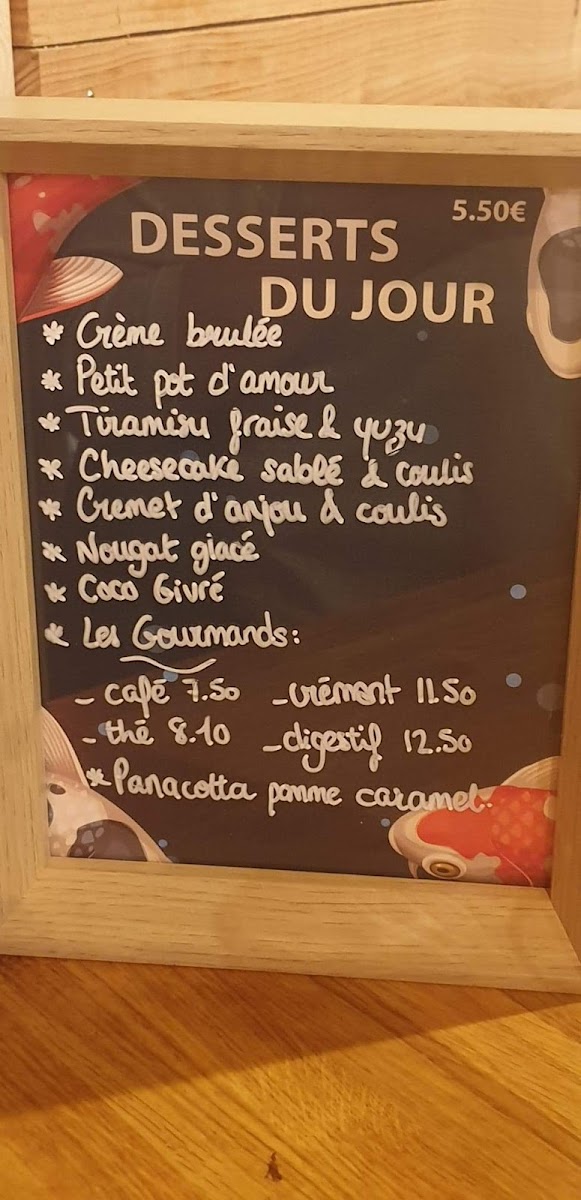 5.50€
DESSERTS
DU JOUR
* Crème brulée
* Petit pot d'amour
* Tiramisu fraise & yuzu
* Cheesecake sablé & coulis
* Cremet d'anjou & coulis
* Nougat glacé
* Coco Givré
* Les Gourmands:
- café 7.50 - crémant 11.50
- thé 8.10 - digestif 12.50
* Panacotta pomme caramel.